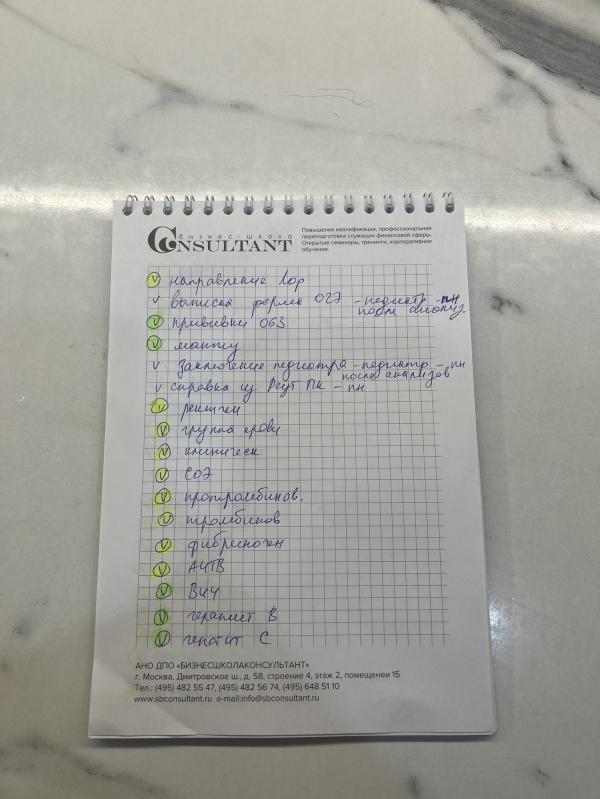 бизнес-школа
CONSULTANT
Повышение квалификации, профессиональная
переподготовка служащих финансовой сферы.
Открытые семинары, тренинги, корпоративное
обучение.
V направление Лор
V выписка форма 027 - педиатр - пн
после анализ.
V прививки 063
V манту
V Заключение педиатра - педиатр - пн
после анализов
V справка из ПК - пн
V рентген
V группа крови
V клиническ.
V СОЭ
V протромбинов.
V тромбинов
V фибриноген
V АЧТВ
V ВИЧ
V гепатит В
V гепатит С
АНО ДПО «БИЗНЕСШКОЛАКОНСУЛЬТАНТ»
г. Москва, Дмитровское ш., д. 58, строение 4, этаж 2, помещении 15
Тел.: (495) 482 55 47, (495) 482 56 74, (495) 648 51 10
www.sbconsultant.ru e-mail:info@sbconsultant.ru